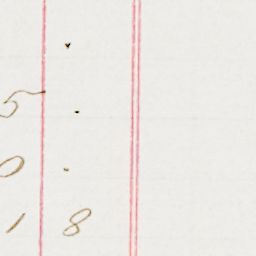 5 .
0 .
1 8